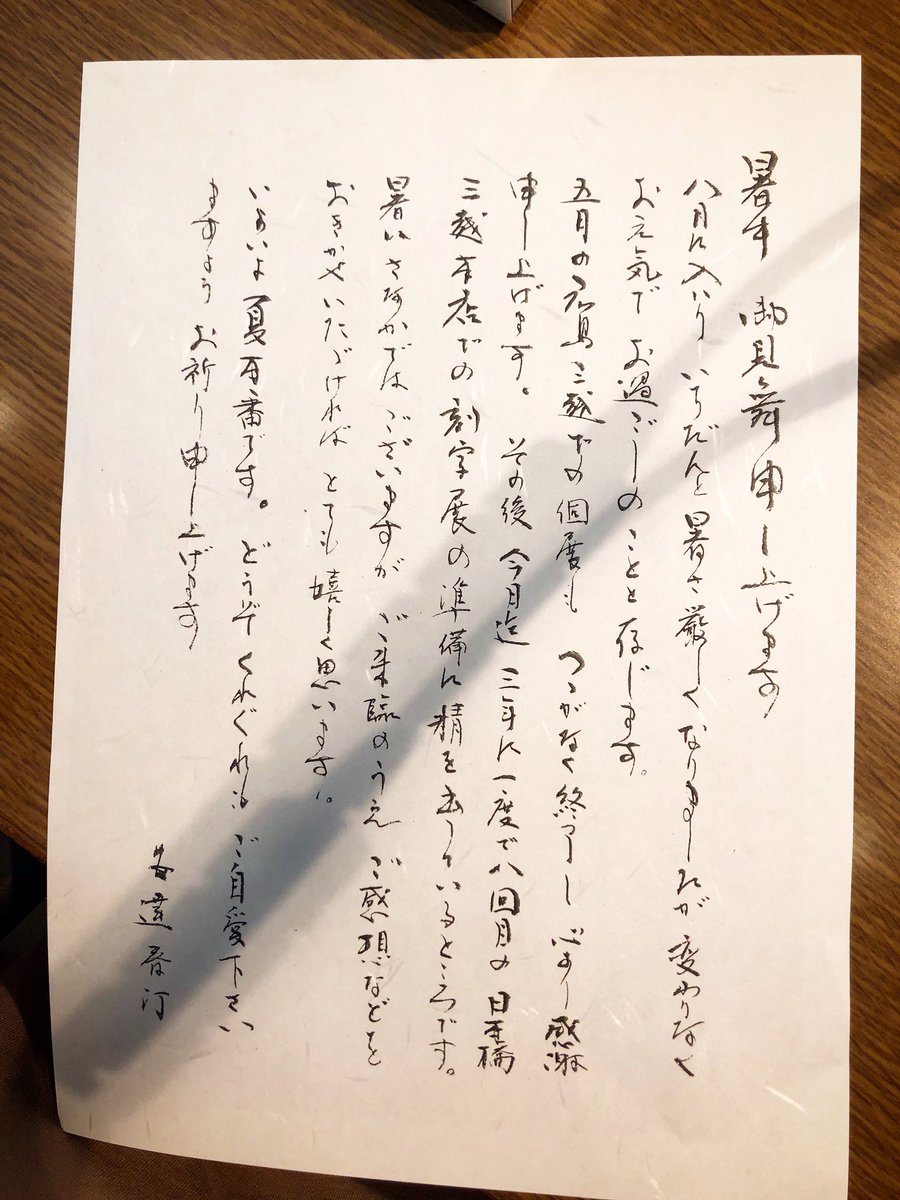 暑中 御見舞申し上げます
八月に入りいちだんと暑さ厳しくなりましたが 変わりなく
お元気で お過ごしのことと存じます。
五月の広島三越での個展も つつがなく終了し 心より感謝
申し上げます。 その後 今月迄 三年に一度で八回目の 日本橋
三越本店での 刻字展の準備に精を出しているところです。
暑いさなかではございますが ご来臨のうえ ご感想などを
おきかせいただければ とても嬉しく思います。
いよいよ夏本番です。 どうぞくれぐれも ご自愛下さい
ますよう お祈り申し上げます
安達春汀